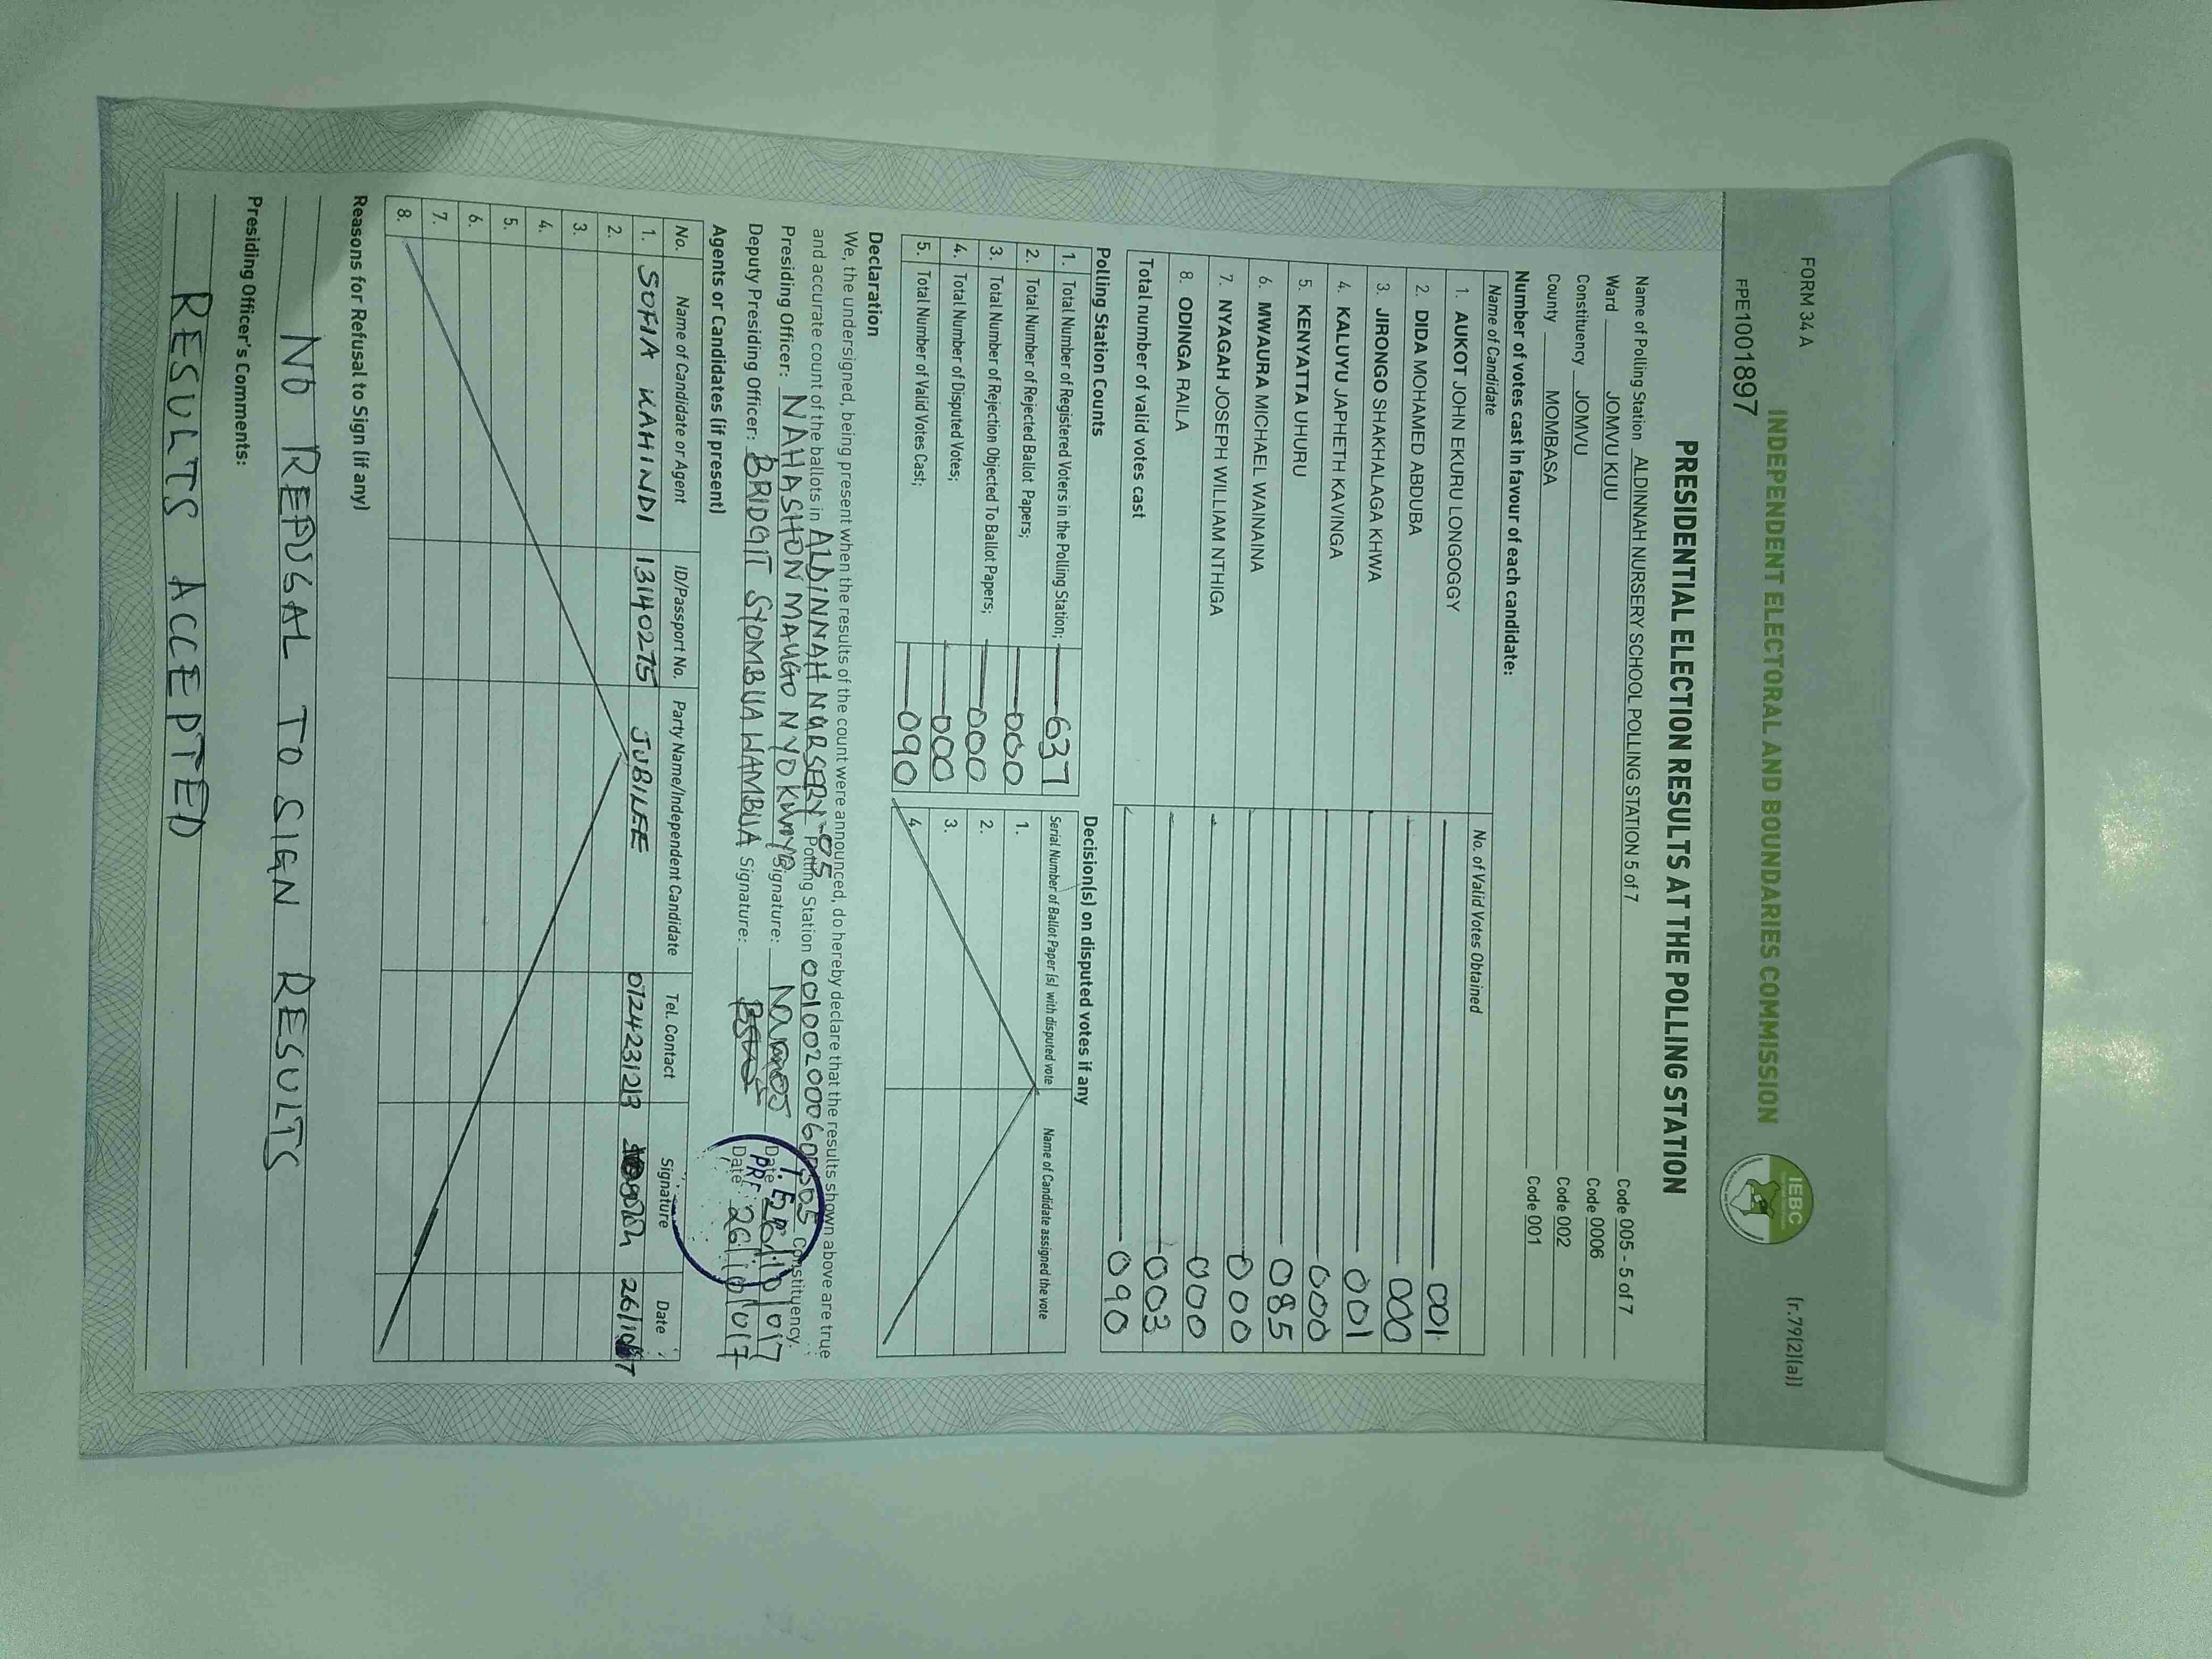 FORM 34 A
(r.79(2)(a))
INDEPENDENT ELECTORAL AND BOUNDARIES COMMISSION
IEBC
FPE1001897
PRESIDENTIAL ELECTION RESULTS AT THE POLLING STATION
Name of Polling Station ALDINNAH NURSERY SCHOOL POLLING STATION 5 of 7 Code 005 - 5 of 7
Ward JOMVU KUU Code 0006
Constituency JOMVU Code 002
County MOMBASA Code 001
Number of votes cast in favour of each candidate:
Name of Candidate No. of Valid Votes Obtained
1. AUKOT JOHN EKURU LONGOGGY 001
2. DIDA MOHAMED ABDUBA 000
3. JIRONGO SHAKHALAGA KHWA 001
4. KALUYU JAPHETH KAVINGA 000
5. KENYATTA UHURU 085
6. MWAURA MICHAEL WAINAINA 000
7. NYAGAH JOSEPH WILLIAM NTHIGA 000
8. ODINGA RAILA 003
Total number of valid votes cast 090
Polling Station Counts
1. Total Number of Registered Voters in the Polling Station; 637
2. Total Number of Rejected Ballot Papers; 000
3. Total Number of Rejection Objected To Ballot Papers; 000
4. Total Number of Disputed Votes; 000
5. Total Number of Valid Votes Cast; 090
Decision(s) on disputed votes if any
Serial Number of Ballot Paper (s) with disputed vote Name of Candidate assigned the vote
1.
2.
3.
4.
Declaration
We, the undersigned, being present when the results of the count were announced, do hereby declare that the results shown above are true
and accurate count of the ballots in ALDINNAH NURSERY-05 Polling Station Constituency.
Presiding Officer: NAHASHON MAUGO Signature: Date
Deputy Presiding Officer: BRIDGIT SYOMBUA WAMBUA Signature: Date 26/10/017
Agents or Candidates (if present)
No. Name of Candidate or Agent ID/Passport No. Party Name/Independent Candidate Tel. Contact Signature Date
1. SOFIA KAHINDI 13140275 JUBILEE
2.
3.
4.
5.
6.
7.
8.
Reasons for Refusal to Sign (if any)
NO REFUSAL TO SIGN RESULTS
Presiding Officer's Comments:
RESULTS ACCEPTED